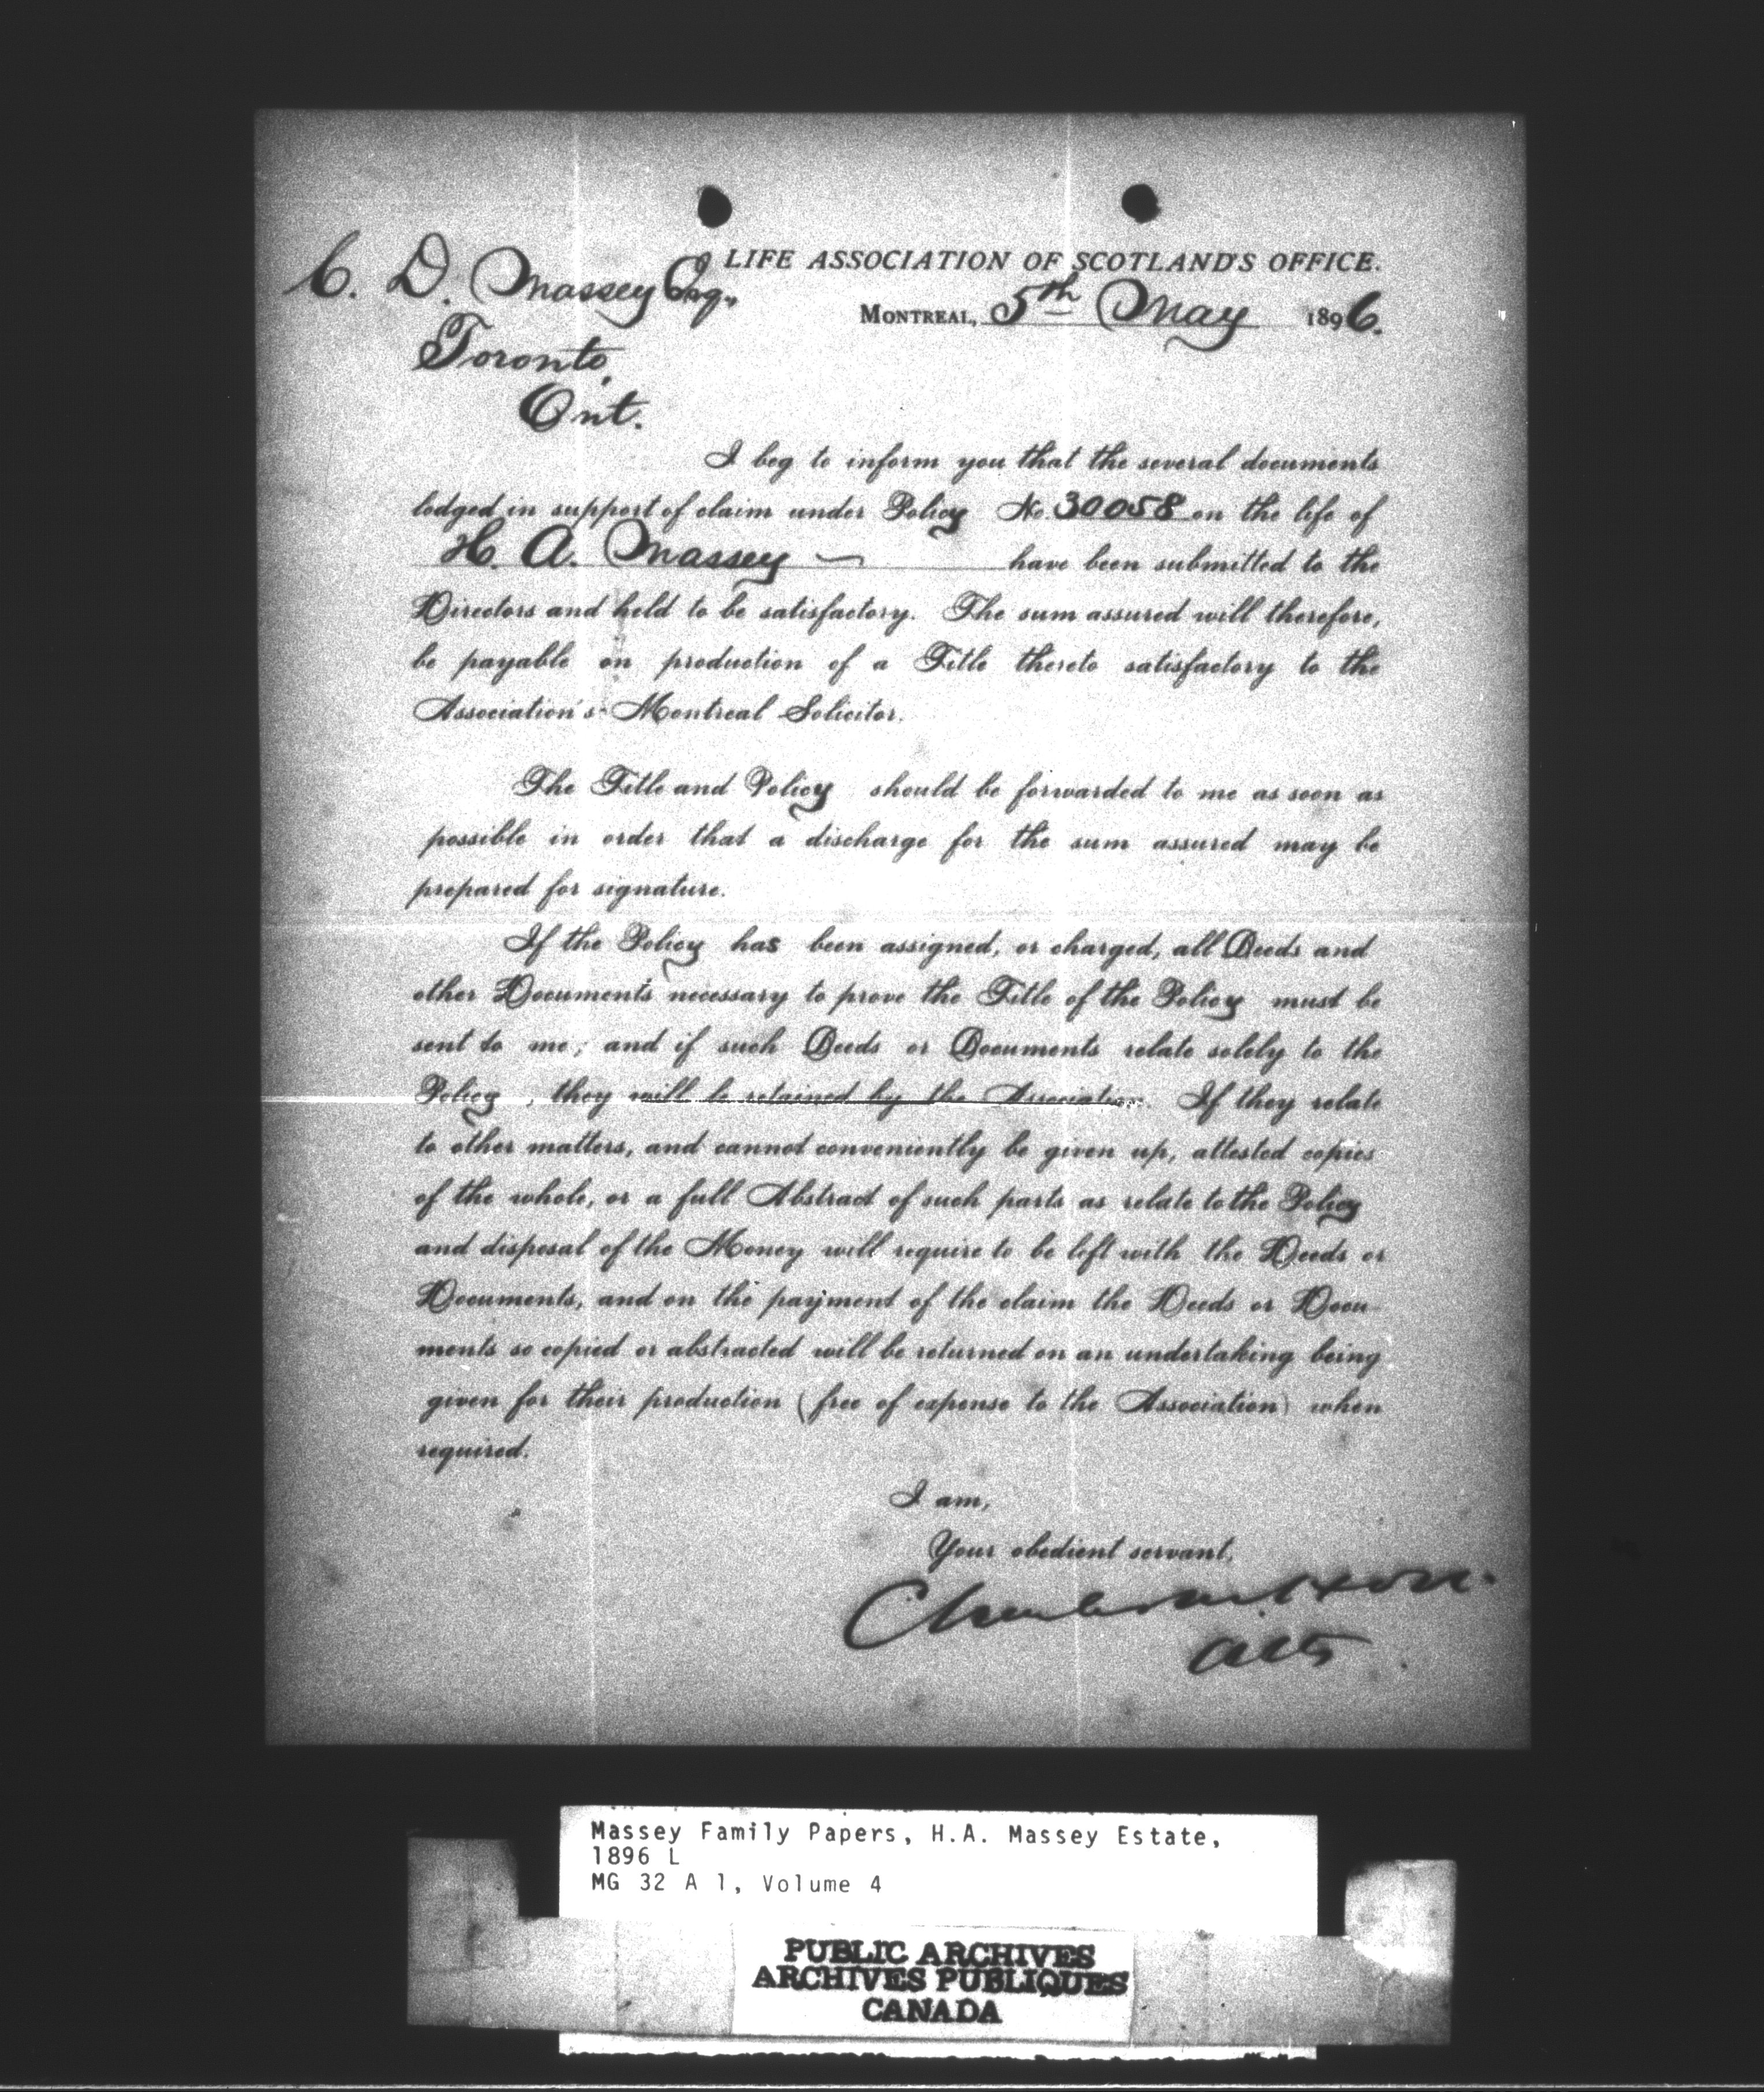 C. D. Massey Esq.,
LIFE ASSOCIATION OF SCOTLAND'S OFFICE.
MONTREAL, 5th May 1896.
Toronto,
Ont.
I beg to inform you that the several documents
lodged in support of claim under Policy No. 30058 on the life of
H. A. Massey — have been submitted to the
Directors and held to be satisfactory. The sum assured will therefore,
be payable on production of a Title thereto satisfactory to the
Association's Montreal Solicitor.
The Title and Policy should be forwarded to me as soon as
possible in order that a discharge for the sum assured may be
prepared for signature.
If the Policy has been assigned, or charged, all Deeds and
other Documents necessary to prove the Title of the Policy must be
sent to me; and if such Deeds or Documents relate solely to the
Policy, they will be retained by the Association. If they relate
to other matters, and cannot conveniently be given up, attested copies
of the whole, or a full Abstract of such parts as relate to the Policy
and disposal of the Money will require to be left with the Deeds or
Documents, and on the payment of the claim the Deeds or Docu-
ments so copied or abstracted will be returned on an undertaking being
given for their production (free of expense to the Association) when
required.
I am,
Your obedient servant,
Massey Family Papers, H.A. Massey Estate,
1896 L
MG 32 A 1, Volume 4
PUBLIC ARCHIVES
ARCHIVES PUBLIQUES
CANADA